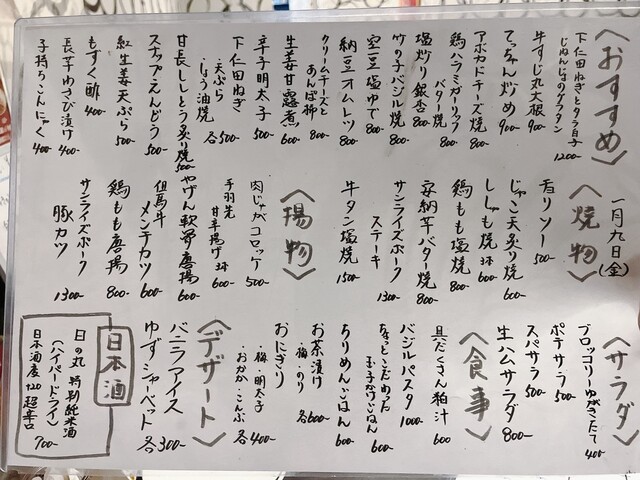 〈おすすめ〉
一月九日(金)
下仁田ねぎとタラ白子
じねんじょのグラタン 1200-
牛すじ丸大根 900-
てっちゃん炒め 900-
アボカドチーズ焼 800-
鶏ハラミガーリック
バター焼 800-
塩炒り銀杏 800-
竹の子バジル焼 800-
空豆塩ゆで 800-
納豆オムレツ 800-
クリームチーズと
あんぽ柿 800-
生姜甘露煮 600-
辛子明太子 500-
下仁田ねぎ
・天ぷら
・しょう油焼 各500-
甘長ししとう炙り焼 500-
スナップえんどう 500-
紅生姜天ぷら 500-
もずく酢 400-
長芋わさび漬け 400-
子持ちこんにゃく 400-
〈焼物〉
チョリソー 500-
じゃこ天炙り焼 600-
ししゃも焼 3本 600-
鶏もも塩焼 800-
安納芋バター焼 800-
サンライズポーク
ステーキ 1300-
牛タン塩焼 1500-
〈揚物〉
肉じゃがコロッケ 500-
手羽先
甘辛揚げ 3本 600-
やげん軟骨唐揚 600-
但馬牛
メンチカツ 600-
鶏もも唐揚 800-
サンライズポーク
豚カツ 1300-
〈サラダ〉
ブロッコリーゆがきたて 400-
ポテサラ 500-
スパサラ 500-
生ハムサラダ 800-
〈食事〉
具だくさん粕汁 600
バジルパスタ 1000-
ちょっとこだわった
玉子かけごはん 600-
ちりめんごはん 600-
お茶漬け
・梅・のり 各600-
おにぎり
・梅・明太子
・おかか・こんぶ 各400-
〈デザート〉
バニラアイス
ゆずシャーベット 各300-
日本酒
日の丸 特別純米酒
(ハイパードライ)
日本酒度+20 超辛口 900-